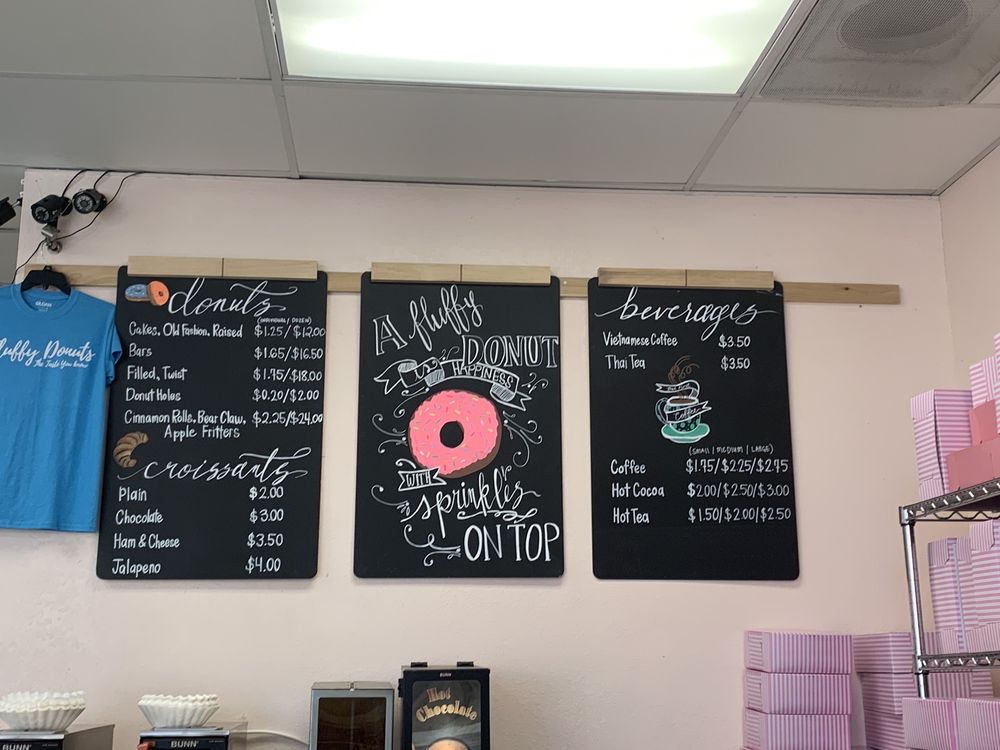 GILDAN
Fluffy Donuts
The Taste You Know
donuts
(INDIVIDUAL / DOZEN)
Cakes, Old Fashion, Raised $1.25/$12.00
Bars $1.65/$16.50
Filled, Twist $1.75/$18.00
Donut Holes $0.20/$2.00
Cinnamon Rolls, Bear Claw, $2.25/$24.00
Apple Fritters
croissants
Plain $2.00
Chocolate $3.00
Ham & Cheese $3.50
Jalapeno $4.00
A fluffy
DONUT
IS
HAPPINESS!
WITH
sprinkles
ON TOP
beverages
Vietnamese Coffee $3.50
Thai Tea $3.50
Coffee
(SMALL / MEDIUM / LARGE)
Coffee $1.75/$2.25/$2.75
Hot Cocoa $2.00/$2.50/$3.00
Hot Tea $1.50/$2.00/$2.50
BUNN
BUNN
BUNN
Hot
Chocolate